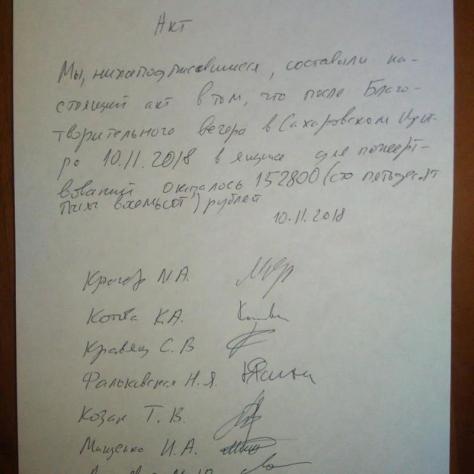 Акт
Мы, нижеподписавшиеся, составили на-
стоящий акт в том, что после Благо-
творительного вечера в Сахаровском Цент-
ре 10.11.2018 в ящике для пожерт-
вований оказалось 152800 (сто пятьдесят
восемьсот) рублей
10.11.2018
И.А.
Котва К.А.
Кравец С.В
Н.Я.
Козак Т.В.
Мащенко И.А.